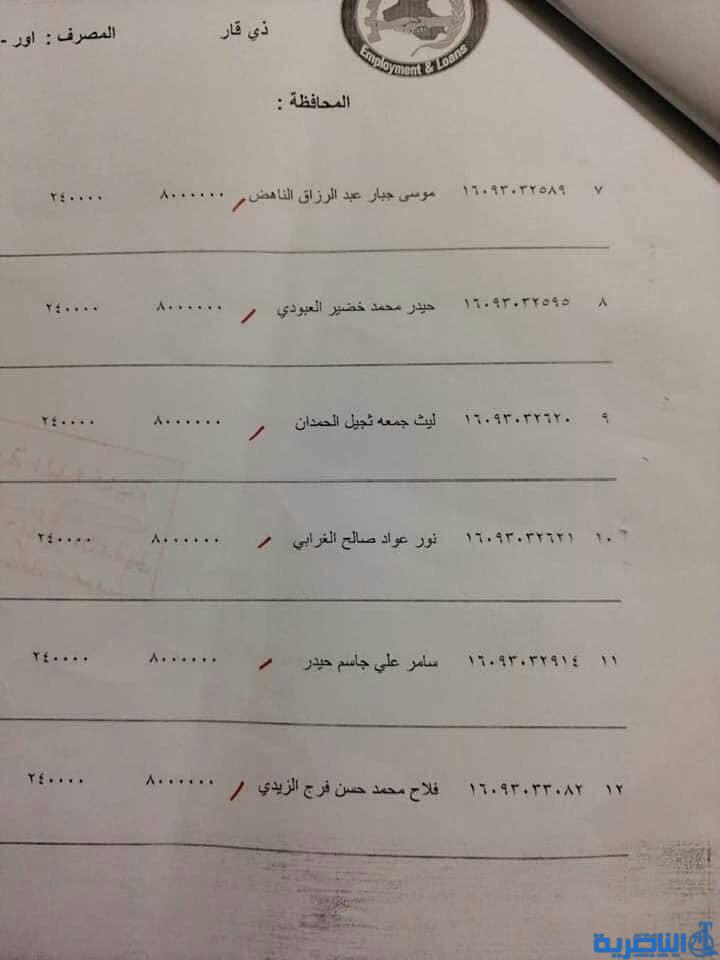 Employment & Loans
ذي قار المصرف : اور -
المحافظة :
٧ ١٦٠٩٣٠٣٢٥٨٩ موسى جبار عبد الرزاق الناهض ٨٠٠٠٠٠٠ ٢٤٠٠٠٠
٨ ١٦٠٩٣٠٣٢٥٩٥ حيدر محمد خضير العبودي ٨٠٠٠٠٠٠ ٢٤٠٠٠٠
٩ ١٦٠٩٣٠٣٢٦٢٠ ليث جمعه ثجيل الحمدان ٨٠٠٠٠٠٠ ٢٤٠٠٠٠
١٠ ١٦٠٩٣٠٣٢٦٢١ نور عواد صالح الغرابي ٨٠٠٠٠٠٠ ٢٤٠٠٠٠
١١ ١٦٠٩٣٠٣٢٩١٤ سامر علي جاسم حيدر ٨٠٠٠٠٠٠ ٢٤٠٠٠٠
١٢ ١٦٠٩٣٠٣٣٠٨٢ فلاح محمد حسن فرج الزيدي ٨٠٠٠٠٠٠ ٢٤٠٠٠٠
الناصرية